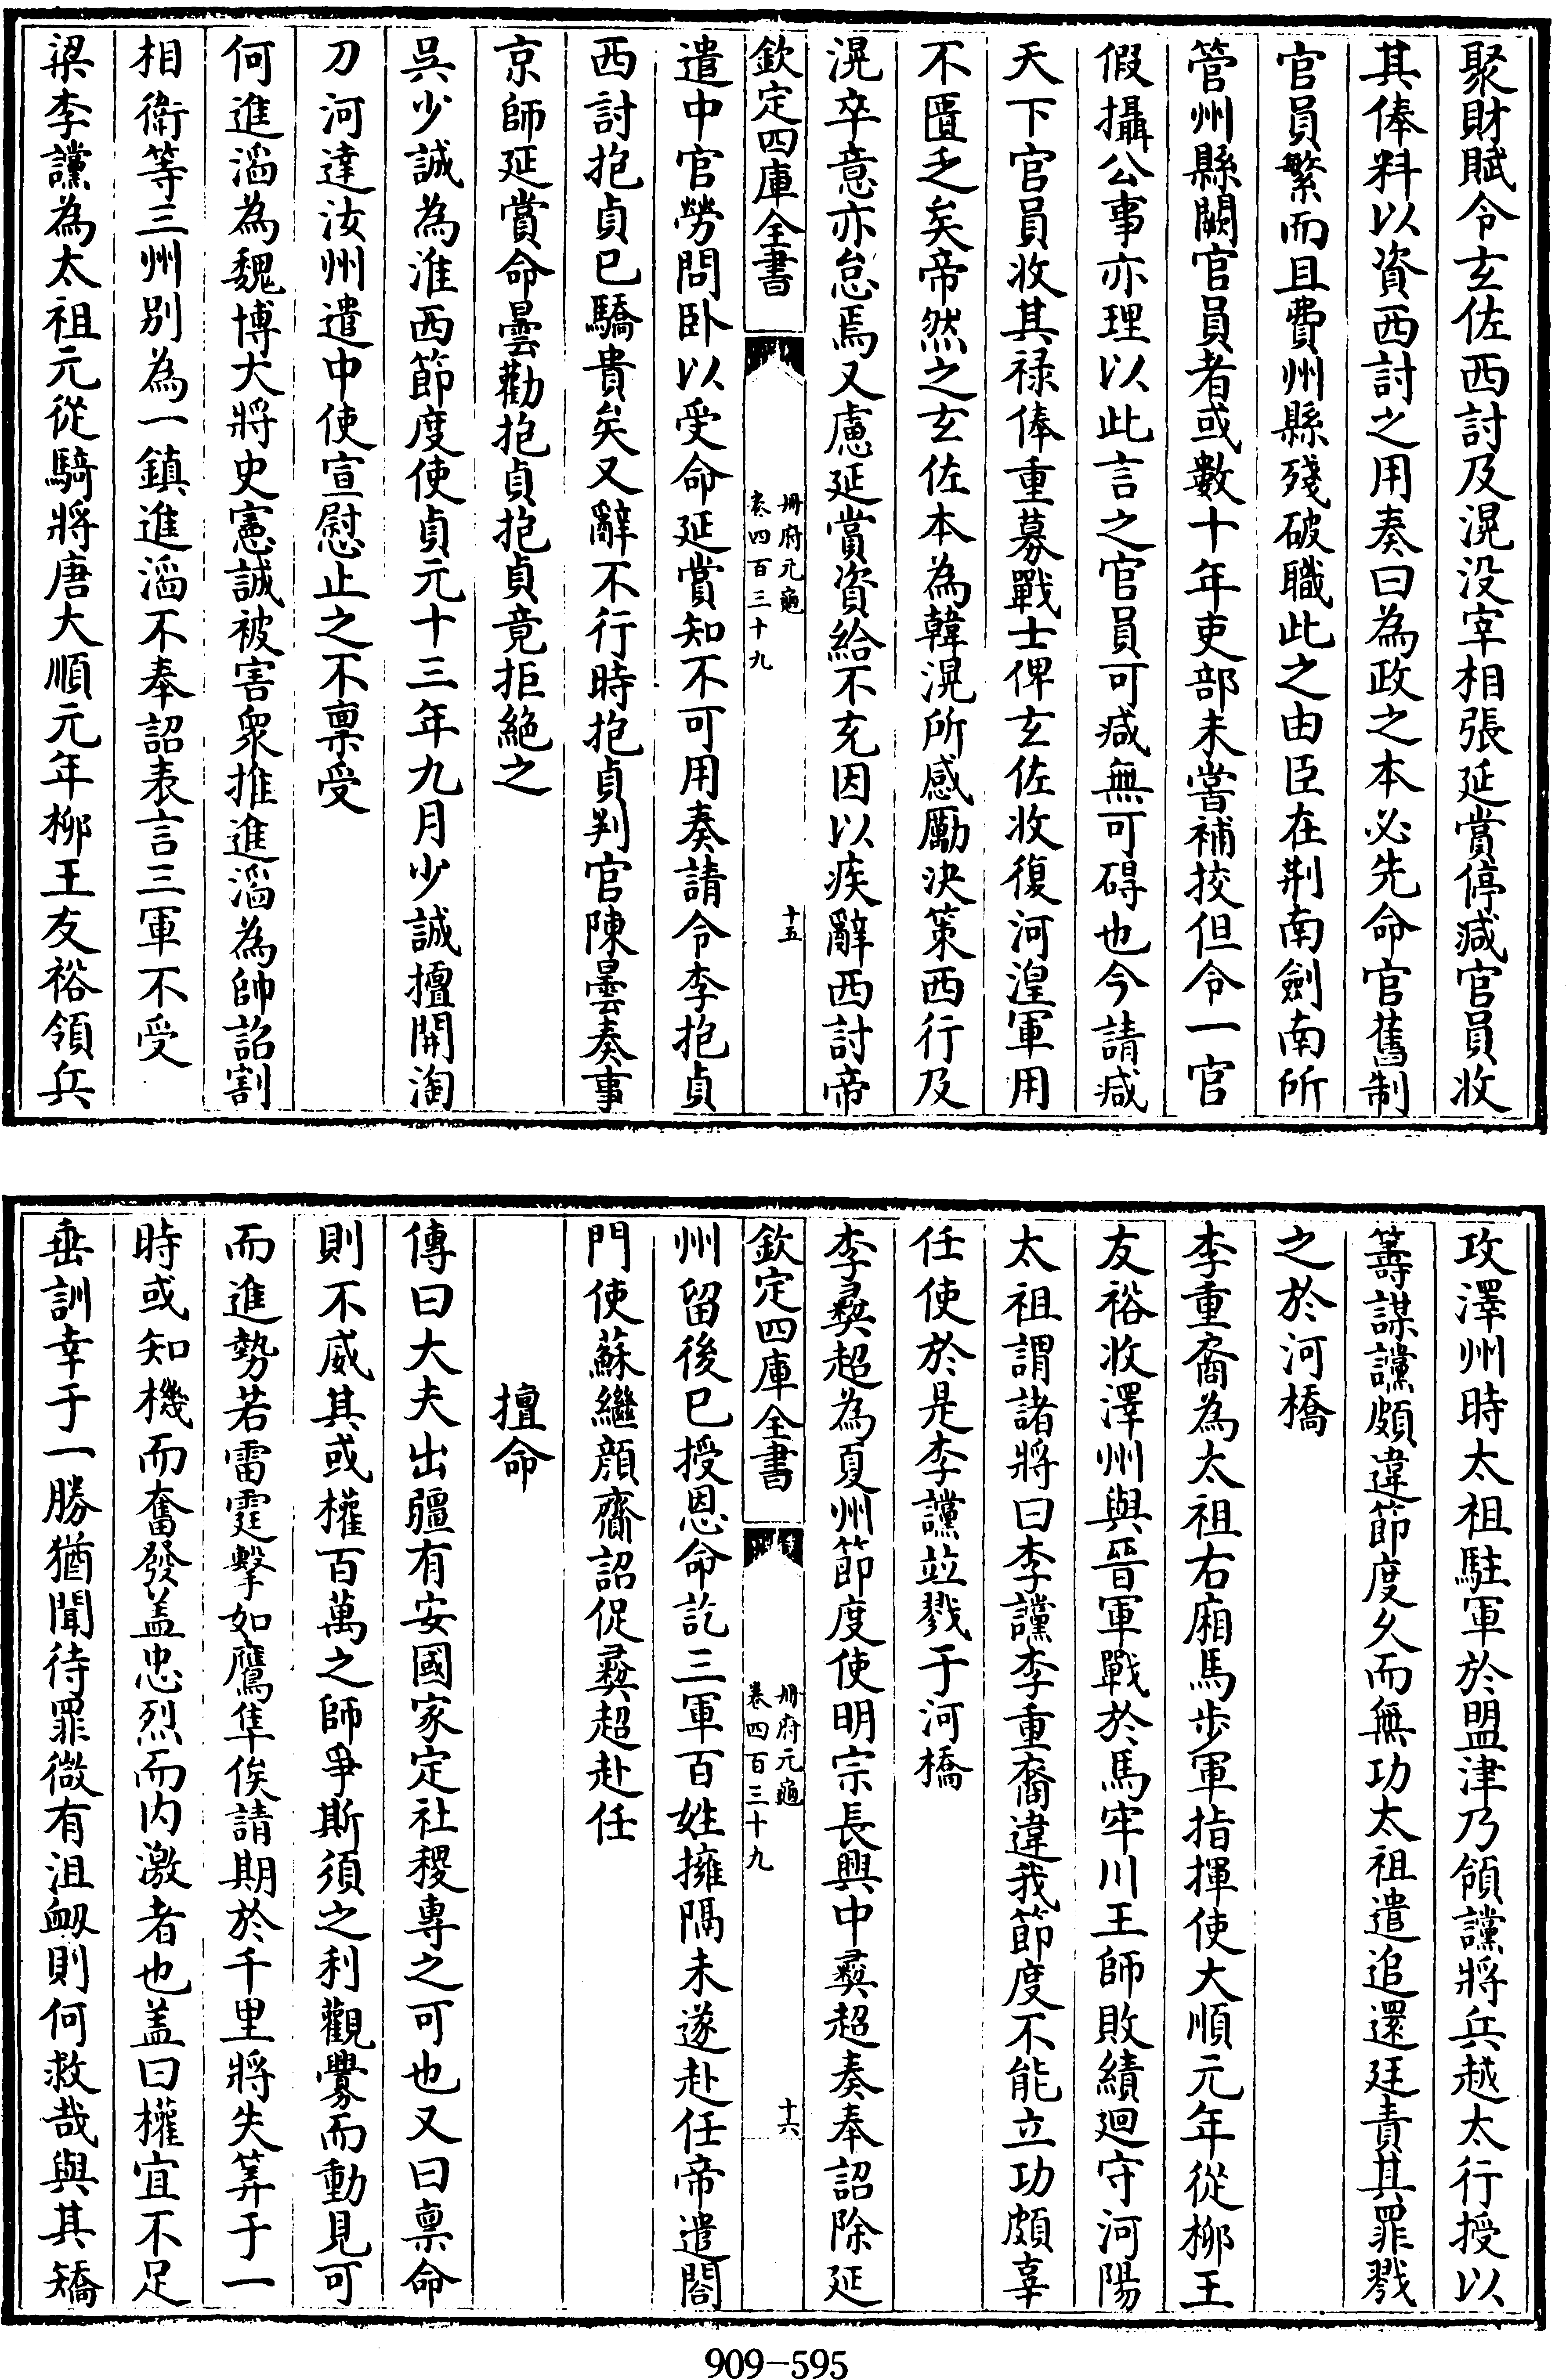 聚財賦令玄佐西討及滉没宰相張延賞停减官員收
其俸料以資西討之用奏曰為政之本必先命官舊制
官員繁而且費州縣殘破職此之由臣在荆南劍南所
管州縣闕官員者或數十年吏部未嘗補挍但令一官
假攝公事亦理以此言之官員可减無可碍也今請减
天下官員收其禄俸重募戰士俾玄佐收復河湟軍用
不匱乏矣帝然之玄佐本為韓滉所感勵決策西行及
滉卒意亦怠焉又慮延賞資給不充因以疾辭西討帝
欽定四庫全書
册府元龜
卷四百三十九
十五
遣中官勞問卧以受命延賞知不可用奏請令李抱貞
西討抱貞已驕貴矣又辭不行時抱貞判官陳曇奏事
京師延賞命曇勸抱貞抱貞竟拒絶之
吳少誠為淮西節度使貞元十三年九月少誠擅開淘
刀河達汝州遣中使宣慰止之不禀受
何進滔為魏博大將史憲誠被害衆推進滔為帥詔割
相衛等三州别為一鎮進滔不奉詔表言三軍不受
梁李讜為太祖元從騎將唐大順元年郴王友裕領兵
攻澤州時太祖駐軍於盟津乃領讜將兵越太行授以
籌謀讜頗違節度乆而無功太祖遣追還廷責其罪戮
之於河橋
李重裔為太祖右廂馬步軍指揮使大順元年從郴王
友裕收澤州與晉軍戰於馬牢川王師敗績廻守河陽
太祖謂諸將曰李讜李重裔違我節度不能立功頗辜
任使於是李讜竝戮于河橋
李彛超為夏州節度使明宗長興中彛超奏奉詔除延
欽定四庫全書
册府元龜
卷四百三十九
十六
州留後已授恩命訖三軍百姓擁隔未遂赴任帝遣閤
門使蘇繼顔齎詔促彛超赴任
擅命
傳曰大夫出疆有安國家定社稷專之可也又曰禀命
則不威其或權百萬之師爭斯須之利觀釁而動見可
而進勢若雷霆擊如鷹隼俟請期於千里將失筭于一
時或知機而奮發盖忠烈而内激者也盖曰權宜不足
垂訓幸于一勝猶聞待罪微有沮衂則何救哉與其矯
909-595